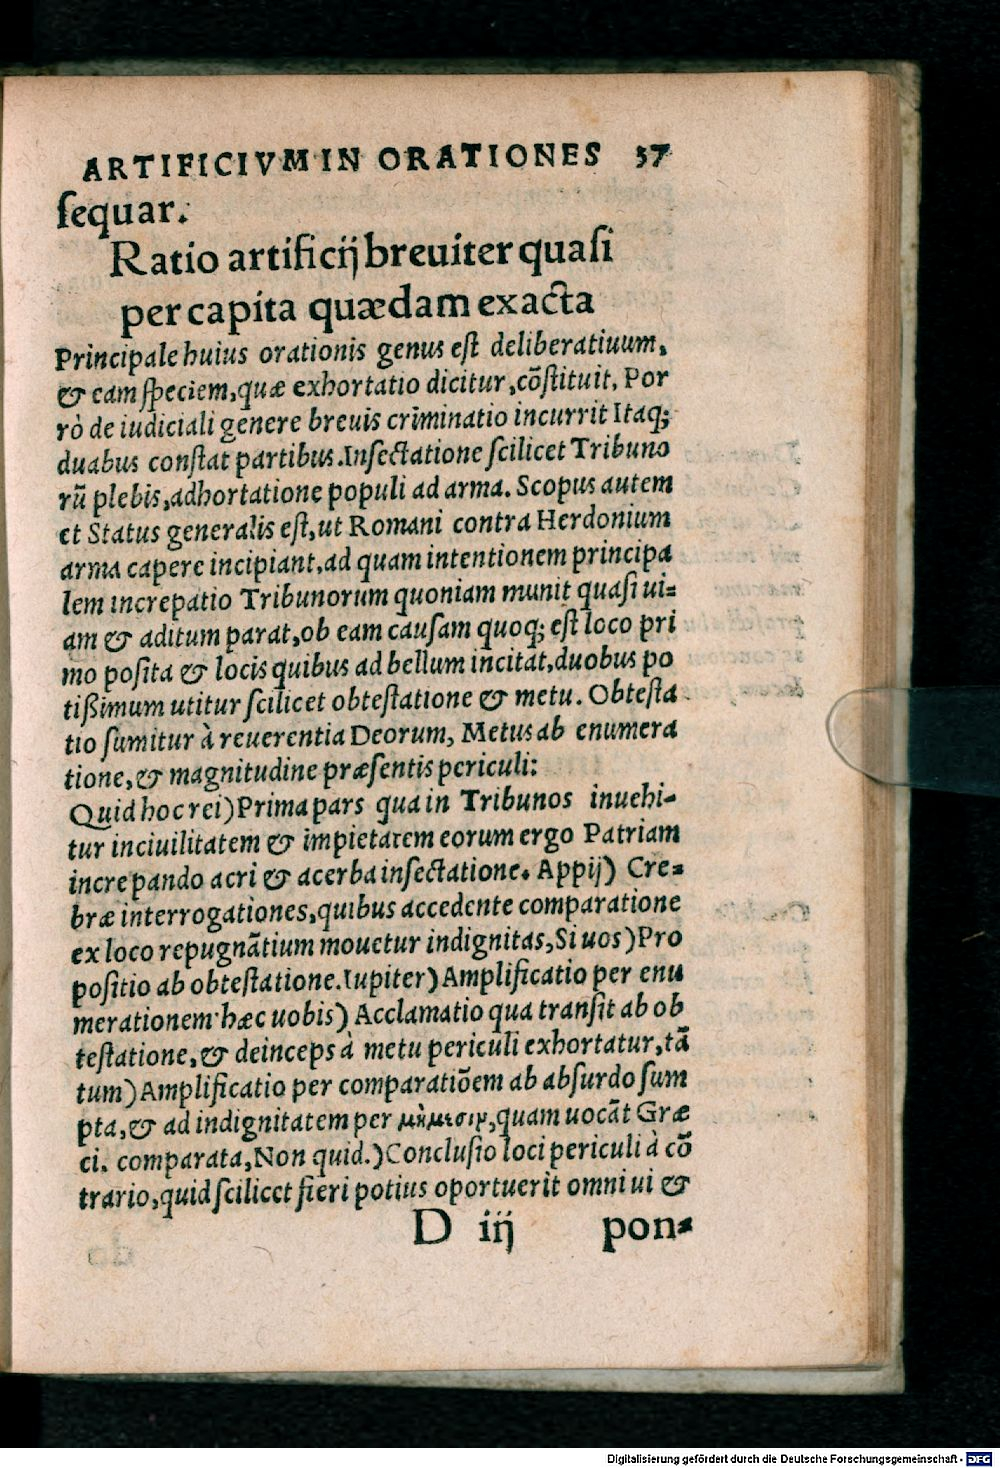 ARTIFICIVM IN ORATIONES 57
ſequar.
Ratio artificij breuiter quaſi
per capita quædam exacta
Principale huius orationis genus eſt deliberatiuum,
& eam ſpeciem, quæ exhortatio dicitur, cõſtituit, Por
rò de iudiciali genere breuis criminatio incurrit Itaq;
duabus conſtat partibus. Inſectatione ſcilicet Tribuno
rũ plebis, adhortatione populi ad arma. Scopus autem
et Status generalis eſt, ut Romani contra Herdonium
arma capere incipiant, ad quam intentionem principa
lem increpatio Tribunorum quoniam munit quaſi ui=
am & aditum parat, ob eam cauſam quoq; eſt loco pri
mo poſita & locis quibus ad bellum incitat, duobus po
tißimum utitur ſcilicet obteſtatione & metu. Obteſta
tio ſumitur à reuerentia Deorum, Metus ab enumera
tione, & magnitudine præſentis periculi:
Quid hoc rei) Prima pars qua in Tribunos inuehi-
tur inciuilitatem & impietatem eorum ergo Patriam
increpando acri & acerba inſectatione. Appij) Cre=
bræ interrogationes, quibus accedente comparatione
ex loco repugnãtium mouetur indignitas, Si uos) Pro
poſitio ab obteſtatione. Iupiter) Amplificatio per enu
merationem· hæc uobis) Acclamatio qua tranſit ab ob
teſtatione, & deinceps à metu periculi exhortatur, tã
tum) Amplificatio per comparatiõem ab abſurdo ſum
pta, & ad indignitatem per μίμισιν, quam uocãt Græ
ci. comparata, Non quid.) Concluſio loci periculi à cõ
trario, quid ſcilicet fieri potius oportuerit omni ui &
D iij pon=
Digitalisierung gefördert durch die Deutsche Forschungsgemeinschaft - DFG